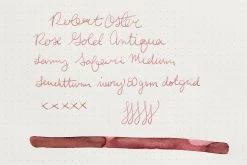 Robert Oster
Rose Gold Antiqua
Lamy Safari Medium
Leuchtturm ivory 80gsm dotgrid
x x x x x